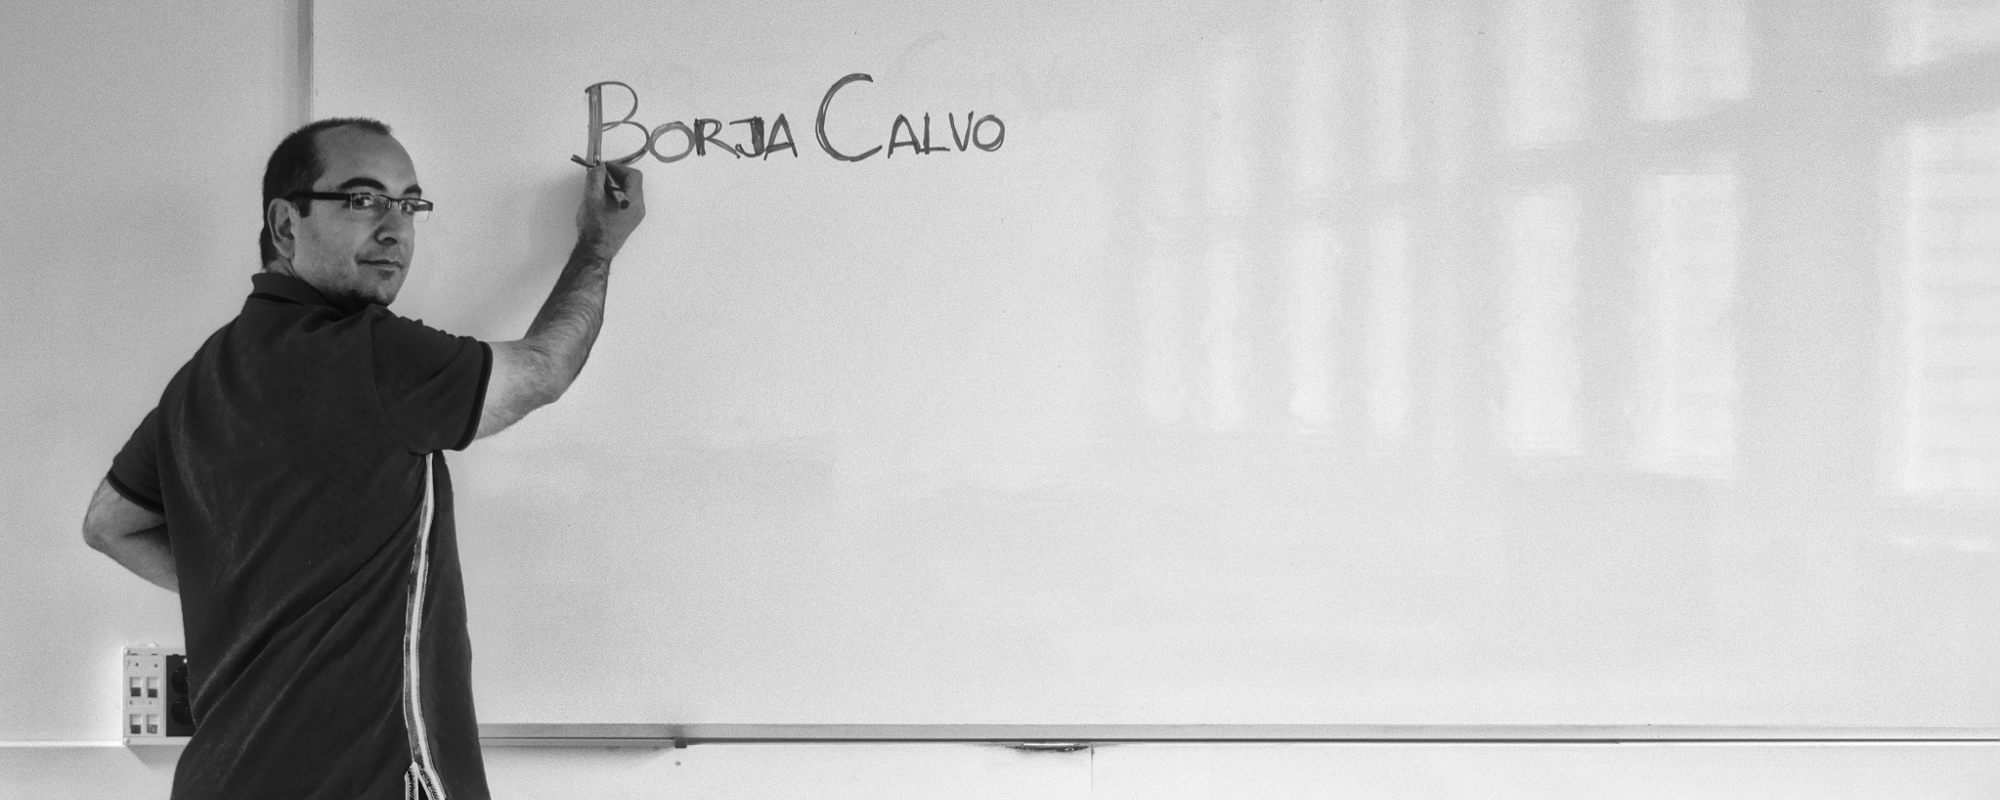 Borja Calvo